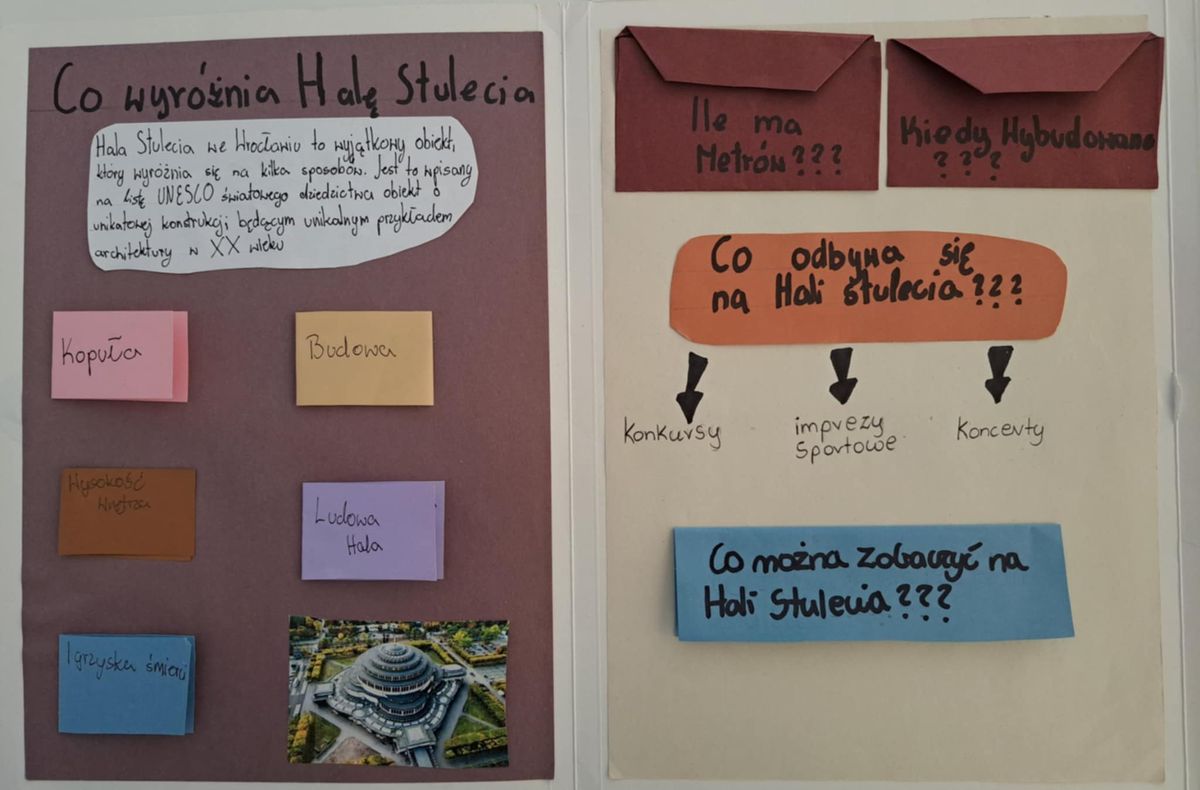 Co wyróżnia Halę Stulecia
Hala Stulecia we Wrocławiu to wyjątkowy obiekt,
który wyróżnia się na kilka sposobów. Jest to wpisany
na listę UNESCO światowego dziedzictwa obiekt o
unikatowej konstrukcji będącym unikalnym przykładem
architektury w XX wieku
Kopuła
Budowa
Wysokość
Wnętrza
Ludowa
Hala
Igrzyska śmierci
Ile ma
Metrów???
Kiedy Wybudowano
???
Co odbywa się
na Hali stulecia???
Konkursy
imprezy
Sportowe
Koncerty
Co można zobaczyć na
Hali Stulecia???